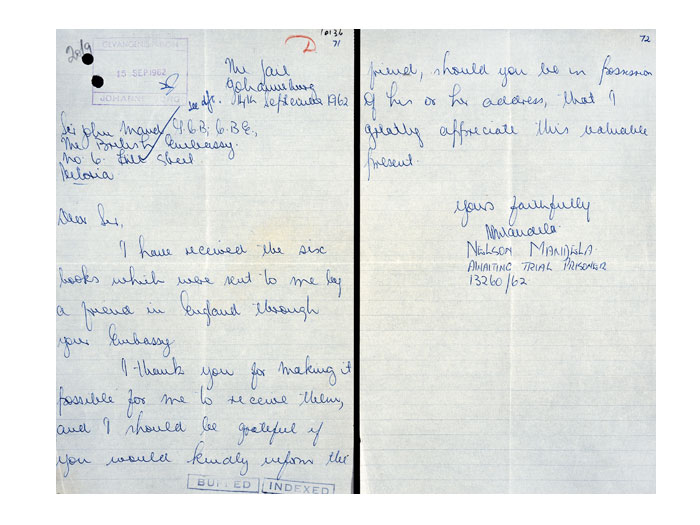 10136
71
20/9
GEVANGENIS/PRISON
15 SEP 1962
JOHANNESBURG
The Jail
Johannesburg
14th September 1962
see d/r.
Sir John Maud G.C.B; C.B.E.,
The British Embassy.
No. 6. Hill Street
Pretoria
Dear Sir,
I have received the six
books which were sent to me by
a friend in England through
your Embassy
I thank you for making it
possible for me to receive them,
and I should be grateful if
you would kindly inform the
BUFFED INDEXED
72
friend, should you be in possession
of his or her address, that I
greatly appreciate this valuable
present.
Yours faithfully
NMandela.
NELSON MANDELA
AWAITING TRIAL PRISONER
13260/62